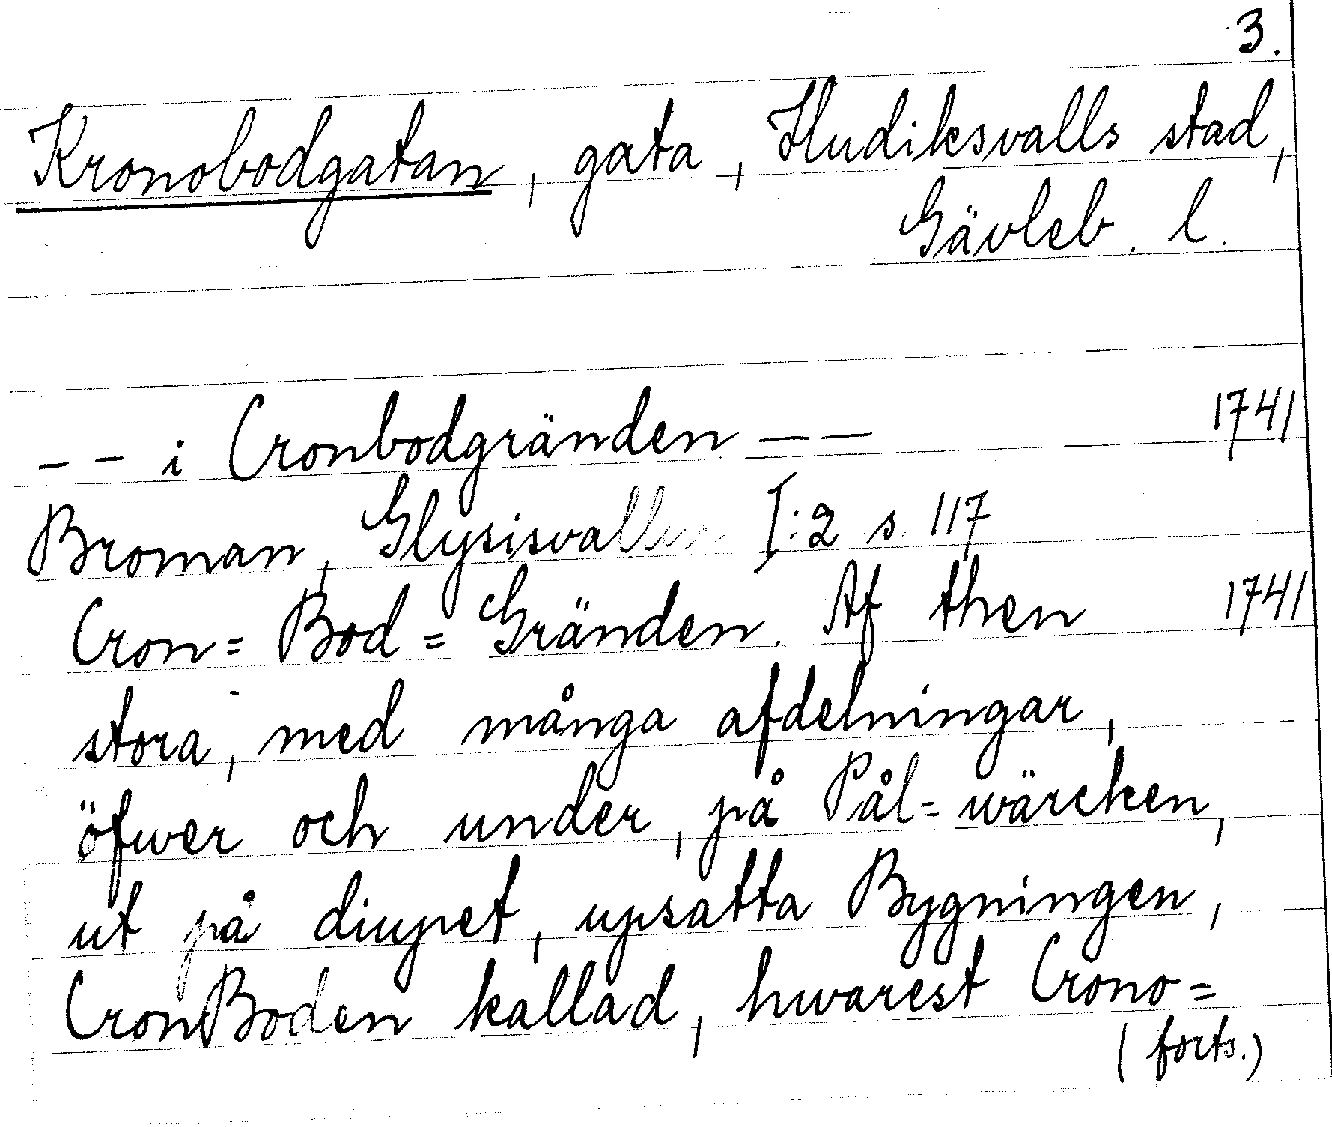 3.
Kronobodgatan, gata, Hudiksvalls stad,
Gävleb. l.
-- i Cronbodgränden -- 1741
Broman, Glysisvallur I:2 s. 117
Cron=Bod=Gränden. Af then 1741
stora, med många afdelningar,
öfwer och under, på Pål=wärcken,
ut på diupet, upsatta Bygningen,
CronBoden kallad, hwarest Crono=
(forts.)